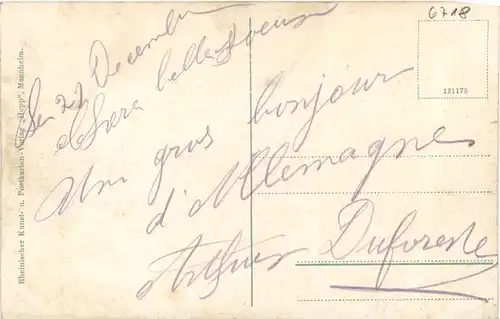 6718
Le 27 Decembre
Chère belle soeur
Un gros bonjour
d'Allemagne
Arthur Duforeste
131175
Rheinischer Kunst- u. Postkarten-Verlag „Hopp“, Mannheim.